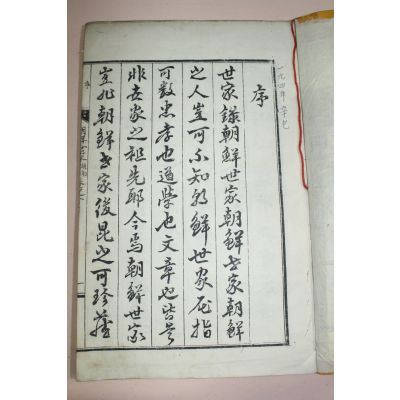 一九四年 辛巳
序
世家錄朝鮮世家朝鮮世家朝鮮
之人豈可不知朝鮮世家屈指
可數忠孝也道學也文章也皆是
非世家之祖先耶今焉朝鮮世家
豈非朝鮮世家後昆之可珍藏
序